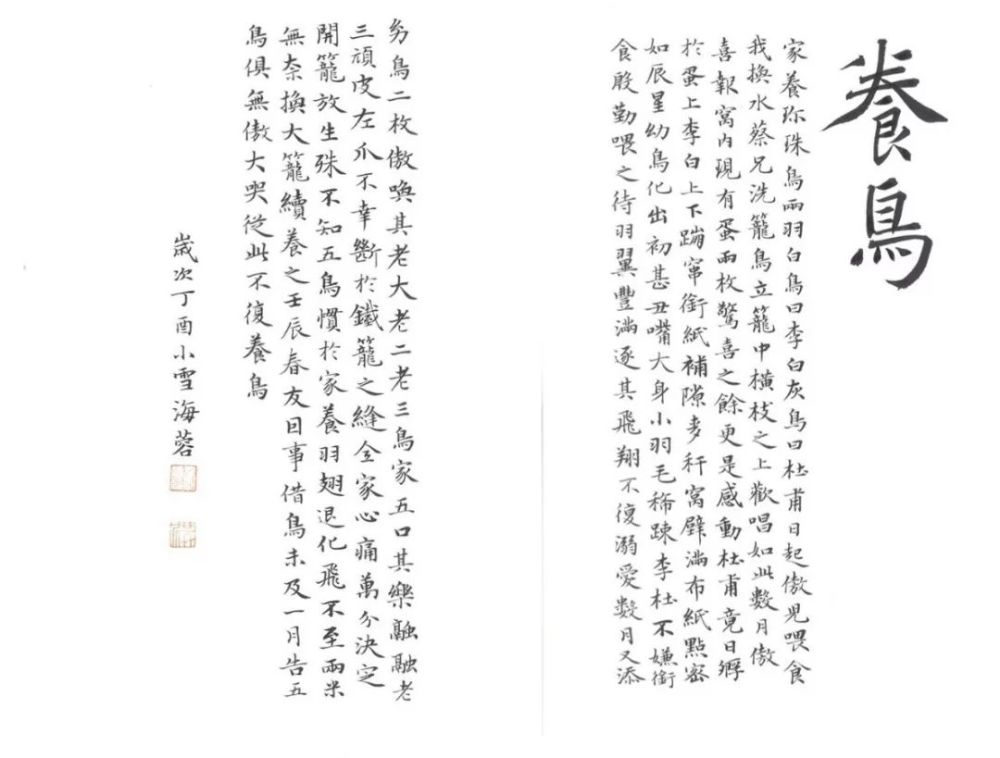 養鳥
家養珎珠鳥兩羽白鳥曰李白灰鳥曰杜甫日起傲兒喂食
我換水蔡兄洗籠鳥立籠中橫枝之上歡唱如此數月傲
喜報窩内現有蛋兩枚驚喜之餘更是感動杜甫竟日孵
於蛋上李白上下蹦窜銜紙補隙麦秆窩壁滿布紙點密
如辰星幼鳥化出初甚丑嘴大身小羽毛稀踈李杜不嫌銜
食殷勤喂之待羽翼豐滿逐其飛翔不復溺愛數月又添
幼鳥二枚傲喚其老大老二老三鳥家五口其樂融融老
三頑皮左爪不幸斷於鐵籠之縫全家心痛萬分決定
開籠放生殊不知五鳥慣於家養羽翅退化飛不至兩米
無奈換大籠續養之壬辰春友因事借鳥未及一月告五
鳥俱無傲大哭從此不復養鳥
歲次丁酉小雪海蓉